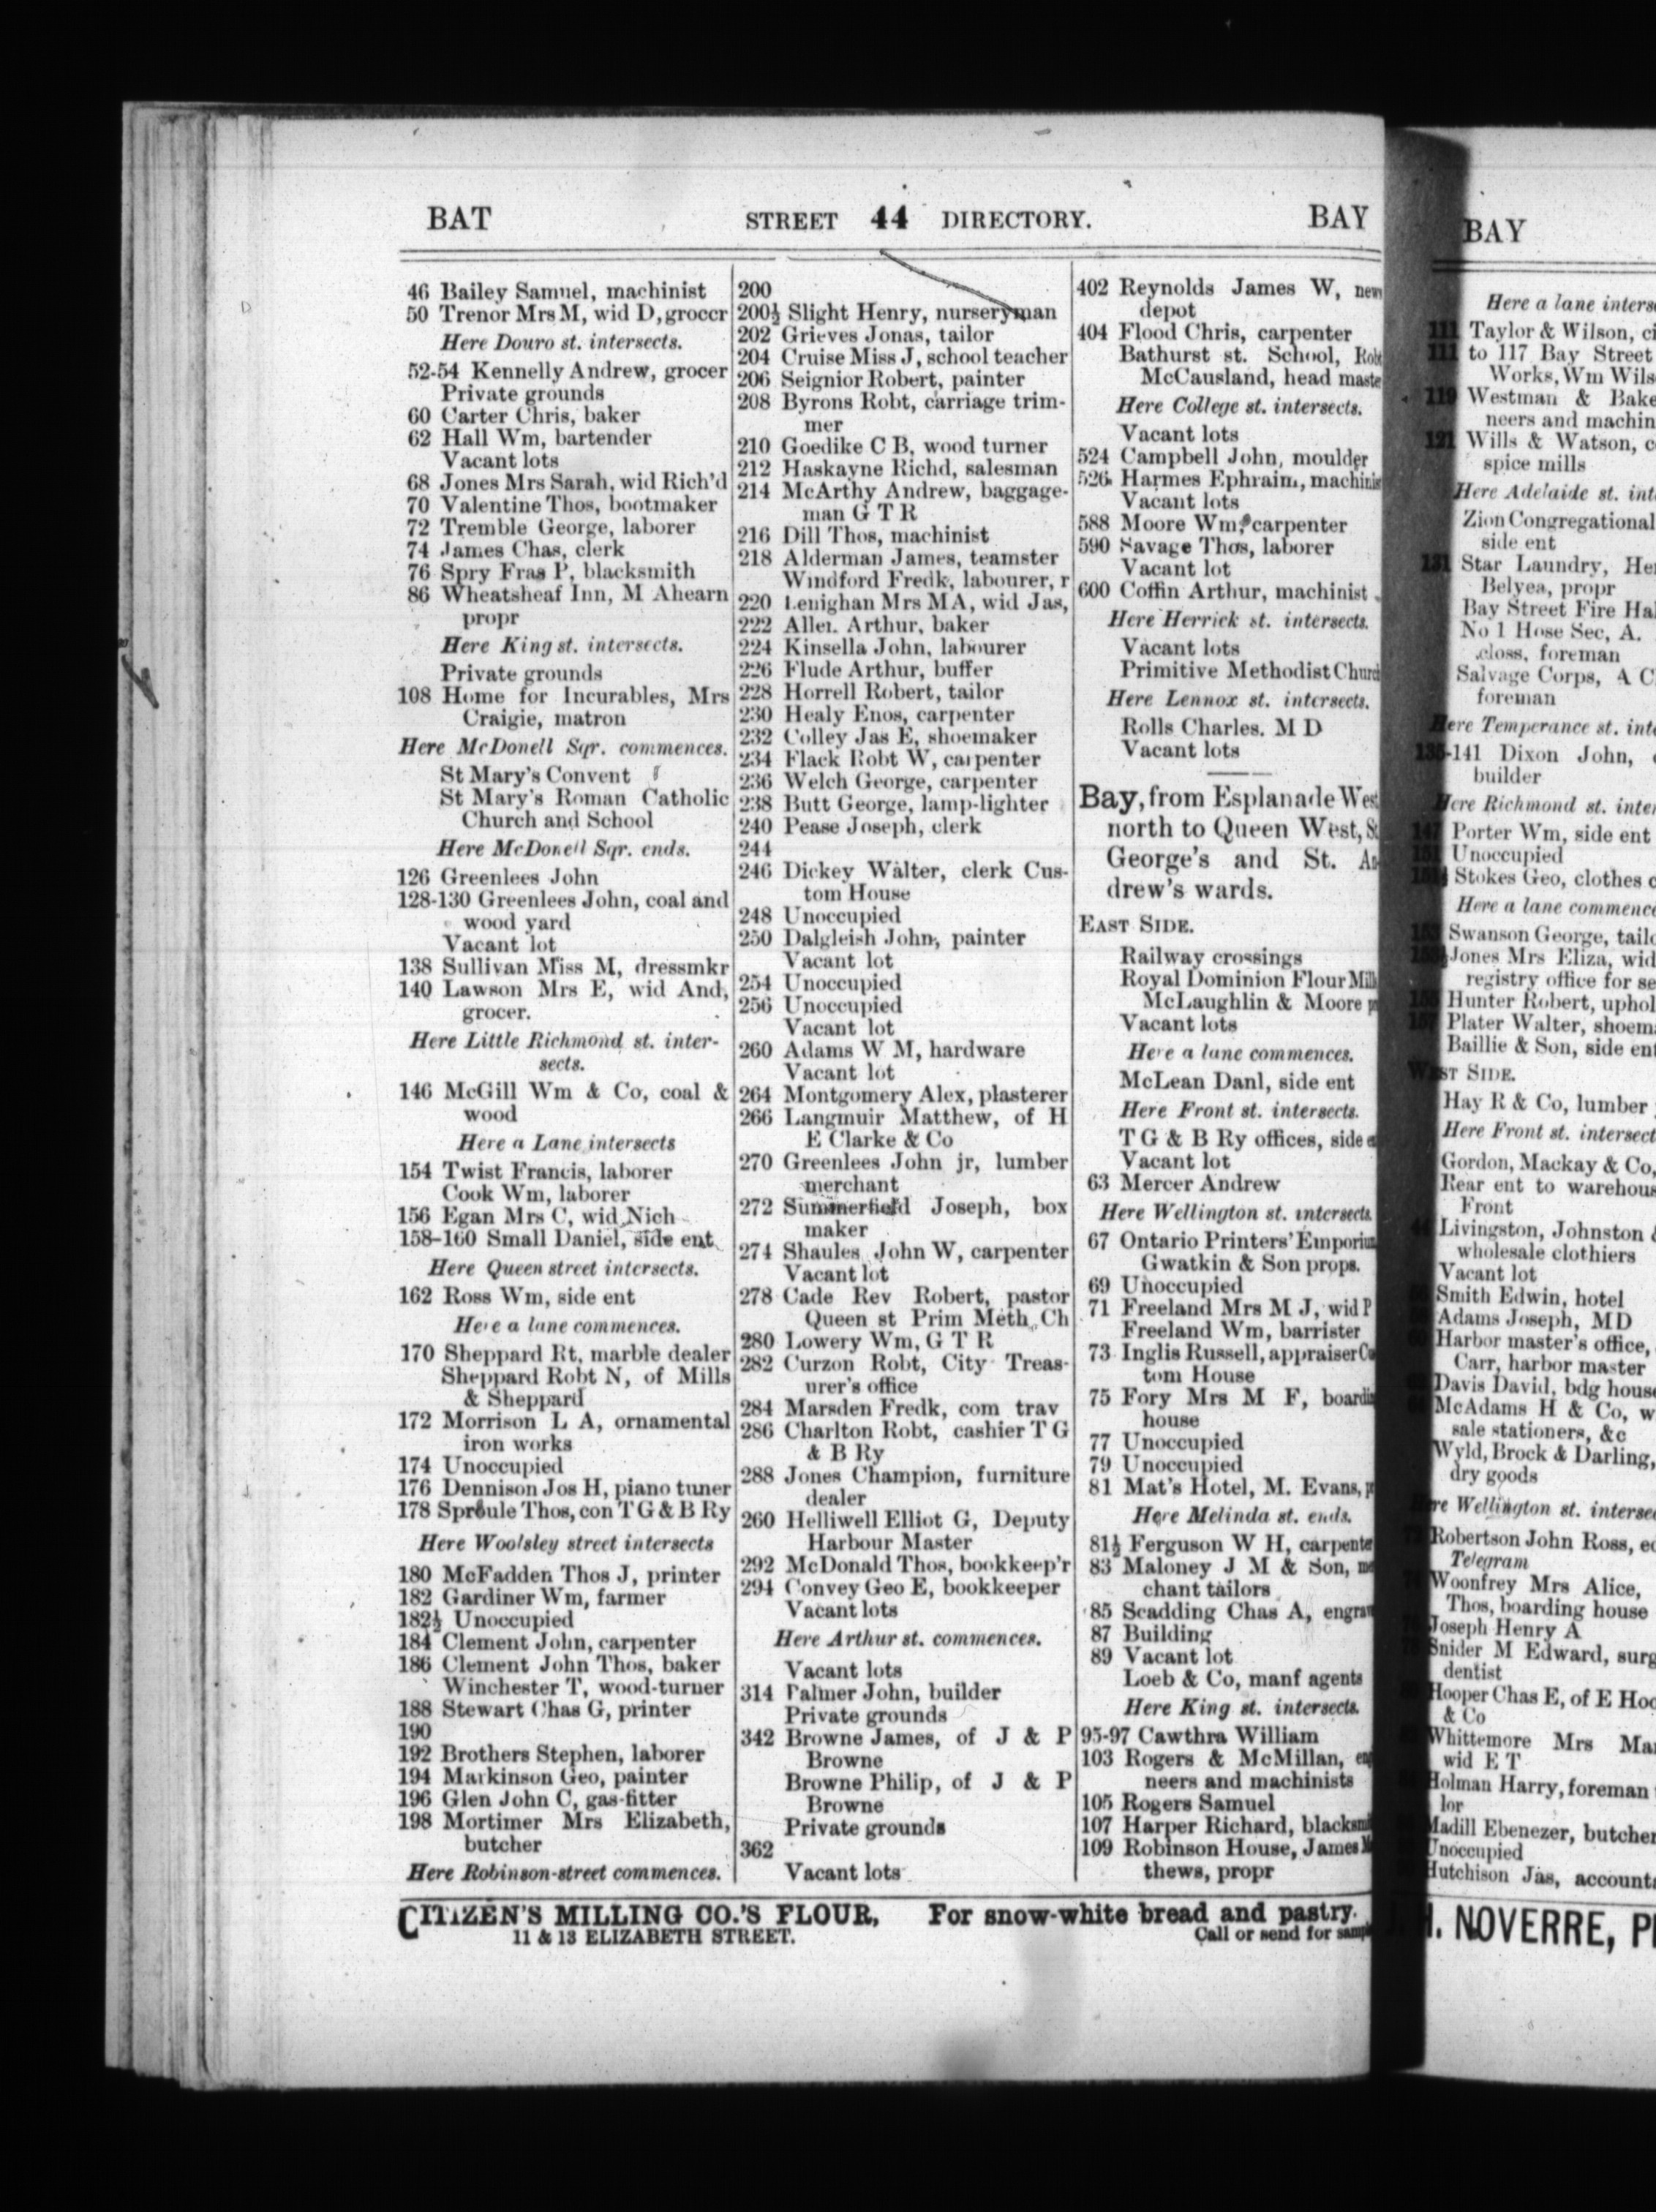 BAT STREET 44 DIRECTORY. BAY
46 Bailey Samuel, machinist
50 Trenor Mrs M, wid D, grocer
Here Douro st. intersects.
52-54 Kennelly Andrew, grocer
Private grounds
60 Carter Chris, baker
62 Hall Wm, bartender
Vacant lots
68 Jones Mrs Sarah, wid Rich'd
70 Valentine Thos, bootmaker
72 Tremble George, laborer
74 James Chas, clerk
76 Spry Fras P, blacksmith
86 Wheatsheaf Inn, M Ahearn
propr
Here King st. intersects.
Private grounds
108 Home for Incurables, Mrs
Craigie, matron
Here McDonell Sqr. commences.
St Mary's Convent
St Mary's Roman Catholic
Church and School
Here McDonell Sqr. ends.
126 Greenlees John
128-130 Greenlees John, coal and
wood yard
Vacant lot
138 Sullivan Miss M, dressmkr
140 Lawson Mrs E, wid And,
grocer.
Here Little Richmond st. inter-
sects.
146 McGill Wm & Co, coal &
wood
Here a Lane intersects
154 Twist Francis, laborer
Cook Wm, laborer
156 Egan Mrs C, wid Nich
158-160 Small Daniel, side ent
Here Queen street intersects.
162 Ross Wm, side ent
Here a lane commences.
170 Sheppard Rt, marble dealer
Sheppard Robt N, of Mills
& Sheppard
172 Morrison L A, ornamental
iron works
174 Unoccupied
176 Dennison Jos H, piano tuner
178 Sproule Thos, con T G & B Ry
Here Woolsley street intersects
180 McFadden Thos J, printer
182 Gardiner Wm, farmer
182½ Unoccupied
184 Clement John, carpenter
186 Clement John Thos, baker
Winchester T, wood-turner
188 Stewart Chas G, printer
190
192 Brothers Stephen, laborer
194 Markinson Geo, painter
196 Glen John C, gas-fitter
198 Mortimer Mrs Elizabeth,
butcher
Here Robinson-street commences.
200
200½ Slight Henry, nurseryman
202 Grieves Jonas, tailor
204 Cruise Miss J, school teacher
206 Seignior Robert, painter
208 Byrons Robt, carriage trim-
mer
210 Goedike C B, wood turner
212 Haskayne Richd, salesman
214 McArthy Andrew, baggage-
man G T R
216 Dill Thos, machinist
218 Alderman James, teamster
Windford Fredk, labourer, r
220 Lenighan Mrs MA, wid Jas,
222 Allen Arthur, baker
224 Kinsella John, labourer
226 Flude Arthur, buffer
228 Horrell Robert, tailor
230 Healy Enos, carpenter
232 Colley Jas E, shoemaker
234 Flack Robt W, carpenter
236 Welch George, carpenter
238 Butt George, lamp-lighter
240 Pease Joseph, clerk
244
246 Dickey Walter, clerk Cus-
tom House
248 Unoccupied
250 Dalgleish John, painter
Vacant lot
254 Unoccupied
256 Unoccupied
Vacant lot
260 Adams W M, hardware
Vacant lot
264 Montgomery Alex, plasterer
266 Langmuir Matthew, of H
E Clarke & Co
270 Greenlees John jr, lumber
merchant
272 Summerfield Joseph, box
maker
274 Shaules John W, carpenter
Vacant lot
278 Cade Rev Robert, pastor
Queen st Prim Meth Ch
280 Lowery Wm, G T R
282 Curzon Robt, City Treas-
urer's office
284 Marsden Fredk, com trav
286 Charlton Robt, cashier T G
& B Ry
288 Jones Champion, furniture
dealer
260 Helliwell Elliot G, Deputy
Harbour Master
292 McDonald Thos, bookkeep'r
294 Convey Geo E, bookkeeper
Vacant lots
Here Arthur st. commences.
Vacant lots
314 Palmer John, builder
Private grounds
342 Browne James, of J & P
Browne
Browne Philip, of J & P
Browne
Private grounds
362
Vacant lots
402 Reynolds James W, news
depot
404 Flood Chris, carpenter
Bathurst st. School, Robt
McCausland, head maste
Here College st. intersects.
Vacant lots
524 Campbell John, moulder
526 Harmes Ephraim, machinis
Vacant lots
588 Moore Wm, carpenter
590 Savage Thos, laborer
Vacant lot
600 Coffin Arthur, machinist
Here Herrick st. intersects.
Vacant lots
Primitive Methodist Church
Here Lennox st. intersects.
Rolls Charles. M D
Vacant lots
Bay, from Esplanade West
north to Queen West, St
George's and St. An-
drew's wards.
EAST SIDE.
Railway crossings
Royal Dominion Flour Mills
McLaughlin & Moore
Vacant lots
Here a lane commences.
McLean Danl, side ent
Here Front st. intersects.
T G & B Ry offices, side
Vacant lot
63 Mercer Andrew
Here Wellington st. intersects.
67 Ontario Printers' Emporium
Gwatkin & Son props.
69 Unoccupied
71 Freeland Mrs M J, wid P
Freeland Wm, barrister
73 Inglis Russell, appraiser Cus
tom House
75 Fory Mrs M F, boarding
house
77 Unoccupied
79 Unoccupied
81 Mat's Hotel, M. Evans,
Here Melinda st. ends.
81½ Ferguson W H, carpenter
83 Maloney J M & Son, mer
chant tailors
85 Scadding Chas A, engraver
87 Building
89 Vacant lot
Loeb & Co, manf agents
Here King st. intersects.
95-97 Cawthra William
103 Rogers & McMillan, engi
neers and machinists
105 Rogers Samuel
107 Harper Richard, blacksmi
109 Robinson House, James
thews, propr
CITIZEN'S MILLING CO.'S FLOUR, For snow-white bread and pastry.
11 & 13 ELIZABETH STREET. Call or send for sample
BAY
Here a lane inters
111 Taylor & Wilson, ci
111 to 117 Bay Street
Works, Wm Wils
119 Westman & Bake
neers and machin
121 Wills & Watson, c
spice mills
Here Adelaide st. int
Zion Congregational
side ent
131 Star Laundry, He
Belyea, propr
Bay Street Fire Hal
No 1 Hose Sec, A.
closs, foreman
Salvage Corps, A C
foreman
Here Temperance st. int
135-141 Dixon John,
builder
Here Richmond st. inter
147 Porter Wm, side ent
151 Unoccupied
151½ Stokes Geo, clothes c
Here a lane commence
153 Swanson George, tailo
Jones Mrs Eliza, wid
registry office for se
155 Hunter Robert, uphol
157 Plater Walter, shoema
Baillie & Son, side ent
WEST SIDE.
Hay R & Co, lumber
Here Front st. intersect
Gordon, Mackay & Co,
Rear ent to warehous
Front
Livingston, Johnston &
wholesale clothiers
Vacant lot
Smith Edwin, hotel
Adams Joseph, MD
Harbor master's office,
Carr, harbor master
Davis David, bdg house
McAdams H & Co, w
sale stationers, &c
Wyld, Brock & Darling,
dry goods
Here Wellington st. interse
Robertson John Ross, ed
Telegram
Woonfrey Mrs Alice,
Thos, boarding house
Joseph Henry A
Snider M Edward, surg
dentist
Hooper Chas E, of E Hoo
& Co
Whittemore Mrs Ma
wid E T
Holman Harry, foreman
lor
Madill Ebenezer, butcher
Unoccupied
Hutchison Jas, account
J. H. NOVERRE, P